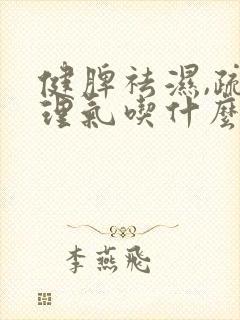 健脾祛濕,疏
理氣喫什麼
李燕飛